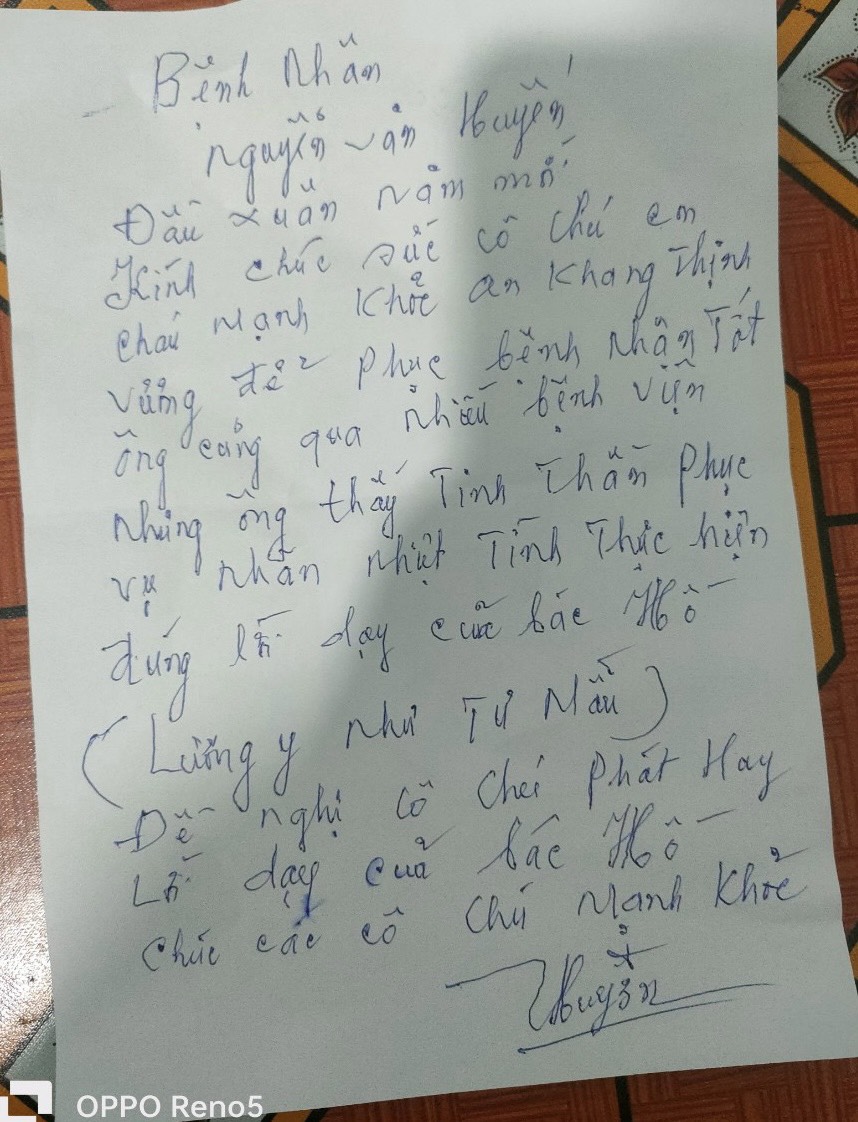 Bệnh Nhân
Nguyễn văn Huyến
Đầu xuân năm mớ
Kính chúc sức cô chú em
cháu mạnh khỏe an khang thịnh
vướng để phục bệnh nhân Tốt
ông cũng qua nhiều bệnh viện
nhưng ông thấy Tinh thần phục
vụ nhân nhiệt Tình Thực hiện
đúng lời dạy của bác Hồ
(Lương y như Từ Mẫu)
Đề nghị cô chú phát Hay
Lời dạy của bác Hồ
chúc các cô chú mạnh khỏe
Huyến
OPPO Reno5